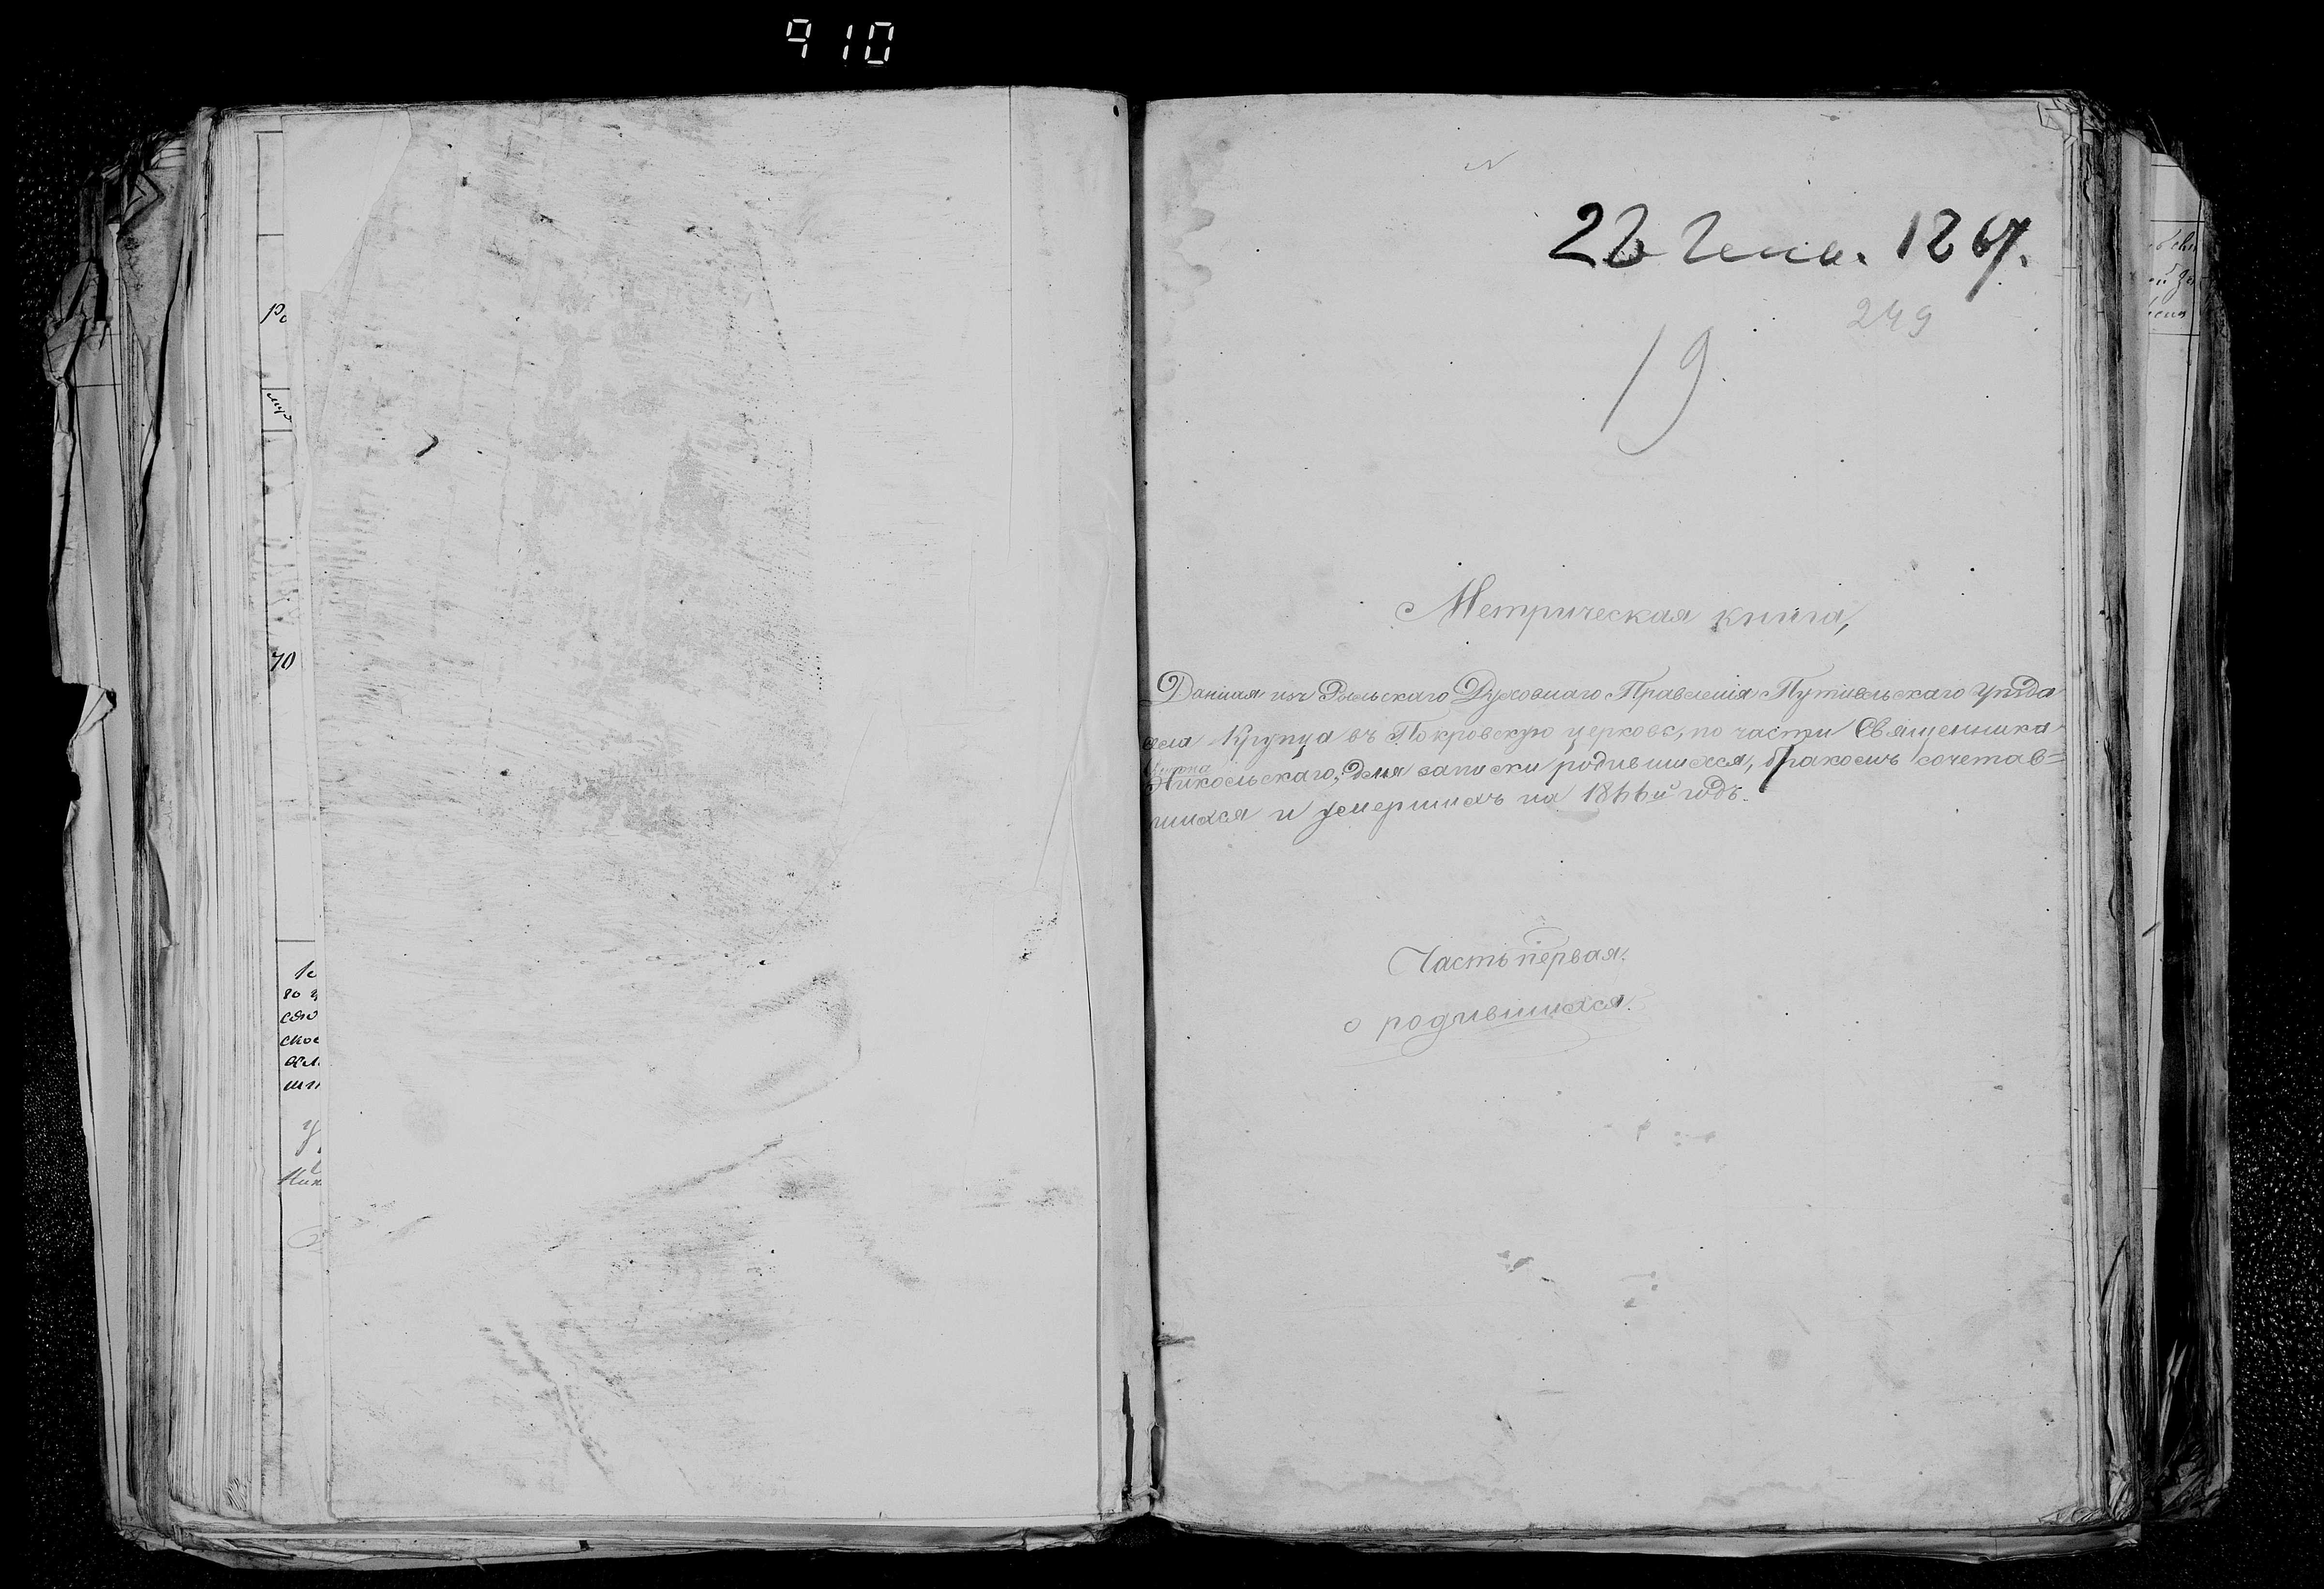 910
Ро
70
19.
249
Метрическая книга,
Данная изъ Рыльскаго Духовнаго Правленія Путивльскаго уѣзда
села Крупца въ Покровскую церковь, по части Священника
Никольскаго, для записки родившихся, бракомъ сочетав=
шихся и умершихъ на 1866й годъ.
Часть первая.
о родившихся.